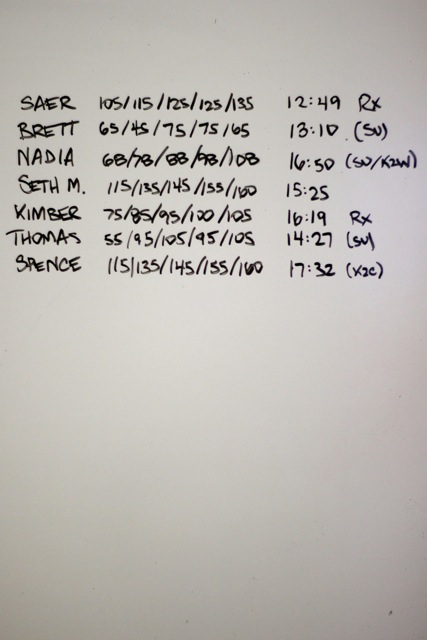 SAER 105/115/125/125/135 12:49 Rx
BRETT 65/45/75/75/65 13:10 (SU)
NADIA 68/78/88/98/108 16:50 (SU/K2W)
SETH M. 115/135/145/155/160 15:25
KIMBER 75/85/95/100/105 16:19 Rx
THOMAS 55/95/105/95/105 14:27 (SU)
SPENCE 115/135/145/155/160 17:32 (K2C)